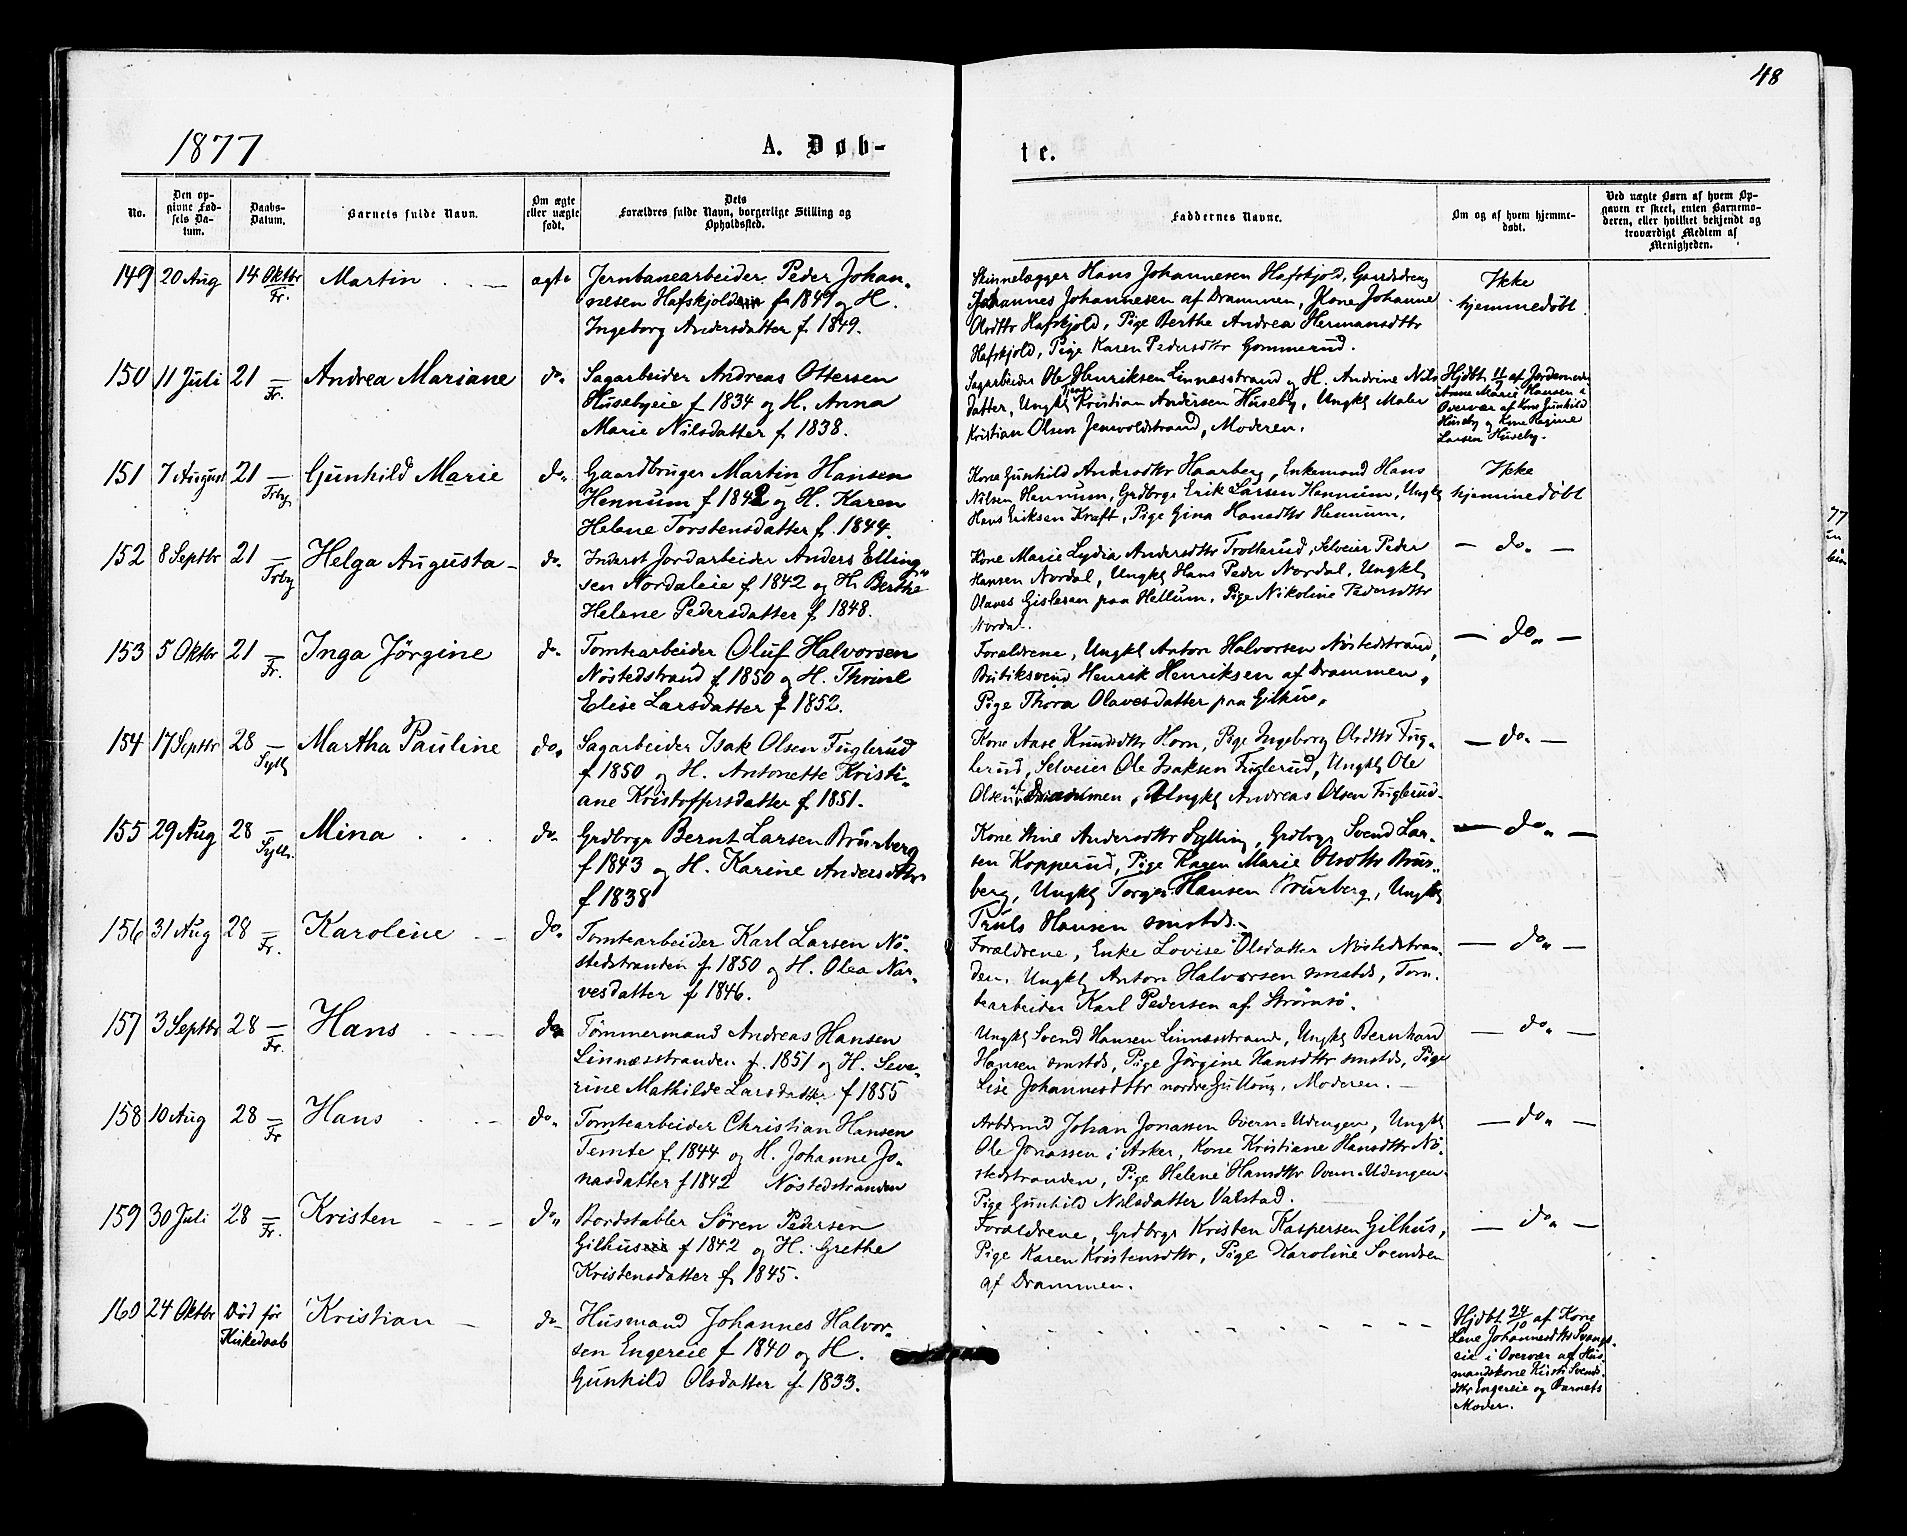 48
1877
A. Døb-
te.
No.
Den op-
givne Fød-
sels Da-
tum.
Daabs-
Datum.
Barnets fulde Navn.
Om ægte
eller uægte
født.
Dets
Forældres fulde Navn, borgerlige Stilling og
Opholdssted.
Faddernes Navne.
Om og af hvem hjemme-
døbt.
Ved uægte Børn af hvem Op-
gaven er skeet, enten Barnemo-
deren, eller hvilket bekjendt og
troværdigt Medlem af
Menigheden.
149 20 Aug 14 Oktbr Fr. Martin ægte
Jernbanearbeider Peder Johan-
nesen Hafskjold f 1849 og H.
Ingeborg Andersdatter f. 1849.
Skinnelægger Hans Johannesen Hafskjold, Gaardsdreng
Johannes Johannesen af Drammen, Kone Johanne
Olsdttr Hafskjold, Pige Berthe Andrea Hermansdttr
Hafskjold, Pige Karen Pedersdttr Gommerud.
Ikke
hjemmedøbt
150 11 Juli 21 — Fr. Andrea Mariane do.
Sagarbeider Andreas Ottersen
Husebyeie f 1834 og H. Anna
Marie Nilsdatter f. 1838.
Sagarbeider Ole Henriksen Linnesstrand og H. Andrine Nils
datter, Ungkl Kristian Andersen Huseby, Ungkl Maler
Kristian Olsen Jenvoldstrand, Moderen.
Hjdbt 11/7 af Jordemoder
Anne Marie Hansen i
Overvær af Kone Gunhild
Huseby og Kone Regine
Larsen Huseby.
151 7 August 21 — Trby Gunhild Marie do.
Gaardbruger Martin Hansen
Hennum f 1842 og H. Karen
Helene Torstensdatter f. 1844.
Kone Gunhild Andersdttr Haarberg, Enkemand Hans
Nilsen Hennum, Grdbrgr Erik Larsen Hennum, Ungkl
Hans Eriksen Kraft, Pige Gina Hansdttr Hennum.
Ikke
hjemmedøbt
152 8 Septbr 21 — Trby Helga Augusta — do.
Inderst Jordarbeider Anders Elling-
sen Nordaleie f 1842 og H. Berthe
Helene Pedersdatter f 1848.
Kone Marie Lydia Andersdttr Trotterud, Selveier Peder
Hansen Nordal, Ungkl Hans Peder Nordal, Ungkl
Olaves Gislesen paa Hellum, Pige Nikoline Pedersdttr
Nordal.
— do. —
153 5 Oktbr 21 — Fr. Inga Jørgine do.
Tomtearbeider Oluf Halvorsen
Nøstedstrand f 1850 og H. Thrine
Elise Larsdatter f 1852.
Forældrene, Ungkl Anton Halvorsen Nøstedstrand,
Butiksvend Henrik Henriksen af Drammen,
Pige Thora Olavesdatter paa Gilhus.
— do. —
154 17 Septbr 28 — Syll Martha Pauline do.
Sagarbeider Isak Olsen Fuglerud
f 1850 og H. Antonette Kristi-
ane Kristoffersdatter f 1851.
Kone Aase Knudsdttr Horn, Pige Ingeborg Olsdttr Fug-
lerud, Selveier Ole Isaksen Fuglerud, Ungkl Ole
Olsen af Drammen, Ungkl Andreas Olsen Fuglerud.
— do. —
155 29 Aug 28 — Syll. Mina do.
Grdbrgr Bernt Larsen Brurberg
f 1843 og H. Karine Andersdttr
f 1838
Kone Mine Andersdttr Sylling, Grdbrgr Svend Lar-
sen Kopperud, Pige Karen Marie Olsdttr Brur-
berg, Ungkl Torger Hansen Brurberg, Ungkl
Truls Hansen smstds.
— do. —
156 31 Aug 28 — Fr. Karoline — do.
Tomtearbeider Karl Larsen Nø-
stedstranden f 1850 og H. Olea Nar-
vesdatter f 1846.
Forældrene, Enke Lovise Olsdatter Nøstedstran-
den, Ungkl Anton Halvorsen smstds, Tom-
tearbeider Karl Pedersen af Strømsø.
— do. —
157 3 Septbr 28 — Fr. Hans do.
Tømmermand Andreas Hansen
Linnæsstranden f. 1851 og H. Seve-
rine Mathilde Larsdatter f 1855
Ungkl Svend Hansen Linnæsstrand, Ungkl Bernhard
Hansen smstds, Pige Jørgine Hansdttr smstds, Pige
Lise Johannesdttr nordre Gullaug, Moderen. —
— do. —
158 10 Aug 28 — Fr Hans do.
Tomtearbeider Christian Hansen
Temte f. 1844 og H. Johanne Jo-
nasdatter f 1842 Nøstedstranden
Arbdsmd Johan Jonassen Overn-Udengen, Ungkl
Ole Jonassen i Asker, Kone Kristiane Hansdttr Nø-
stedstranden, Pige Helene Hansdttr Overn-Udengen
Pige Gunhild Nilsdatter Valstad.
— do. —
159 30 Juli 28 — Fr. Kristen do.
Bordstabler Søren Pedersen
Gilhus f 1842 og H. Grethe
Kristensdatter f. 1845.
Forældrene, Grdbrgr Kristen Kaspersen Gilhus,
Pige Karen Kristensdttr, Pige Karoline Svendsen
af Drammen.
— do. —
160 24 Oktbr Død før
Kirkedaab
Kristian — do.
Husmand Johannes Halvor-
sen Engereie f 1840 og H.
Gunhild Olsdatter f. 1833.
Hjdbt 24/10 af Kone
Lene Johannesdttr Svangs-
eie i Overvær af Hus-
mandskone Kirsti Svends-
dttr Engereie og Barnets
Moder.